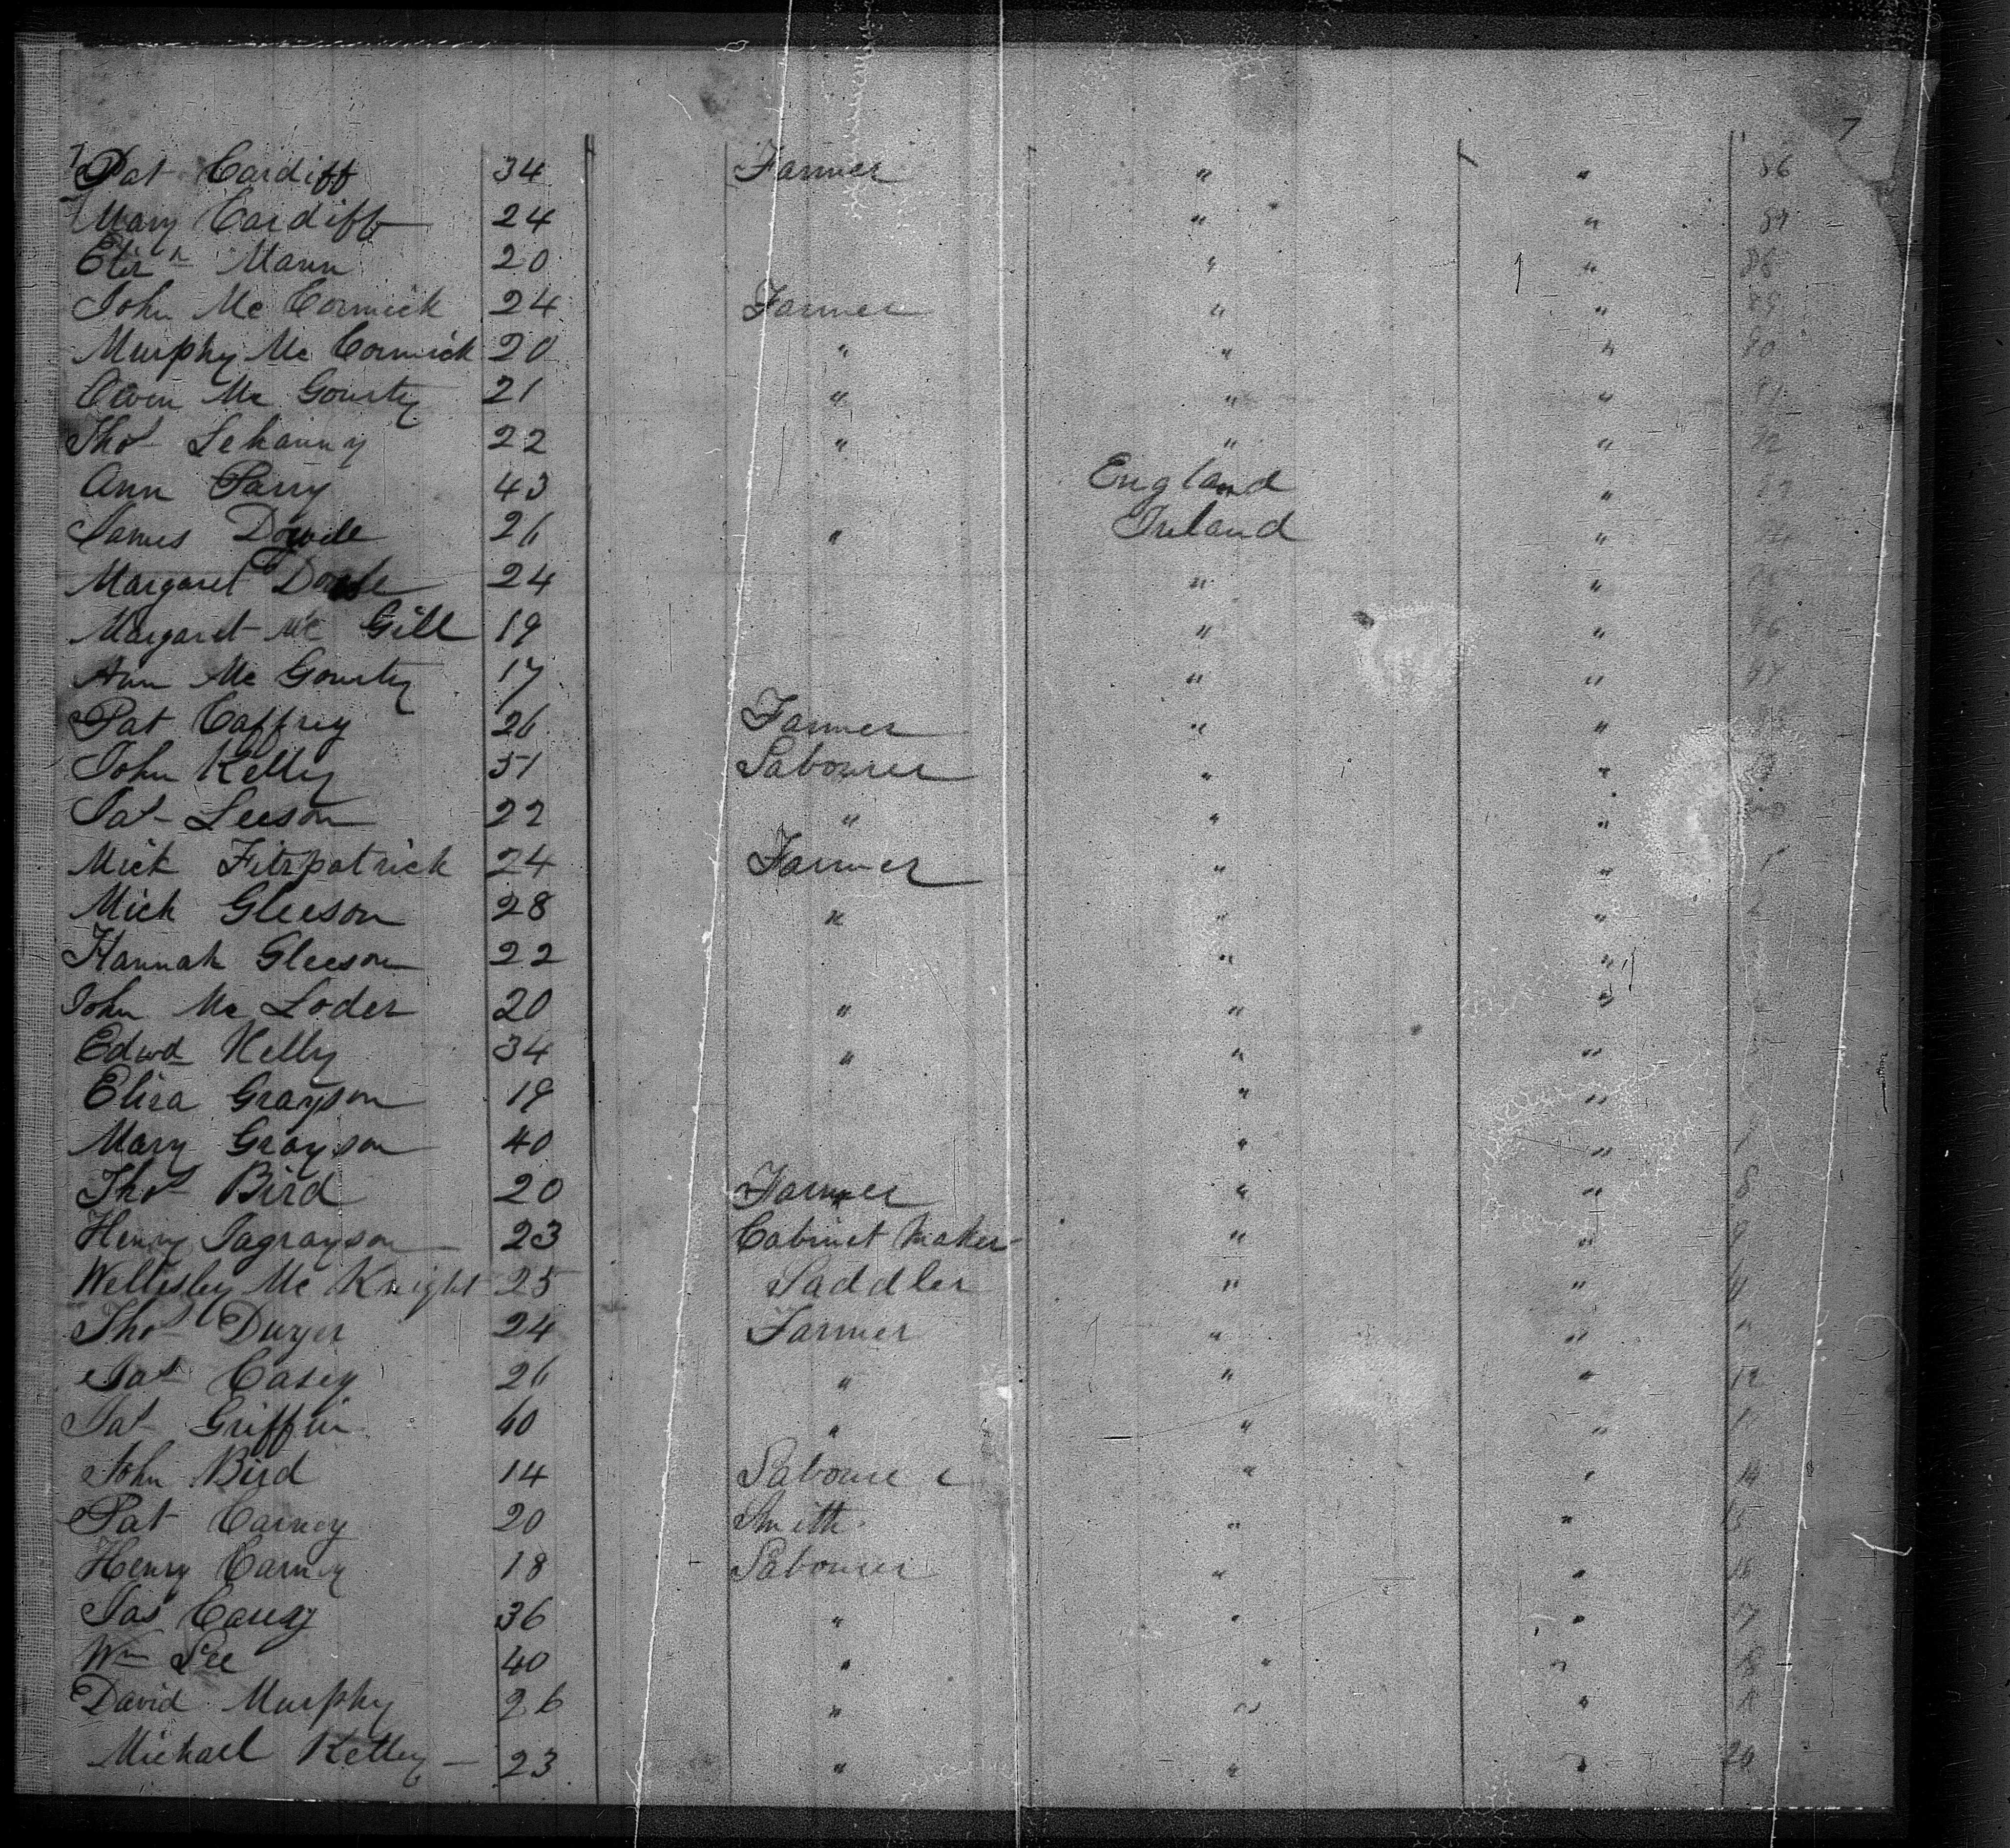 7
Pat Cardiff 34 Farmer " " 86
Mary Cardiff 24 " " 87
Elizh Mann 20 " " 88
John Mc Cormick 24 Farmer " " 89
Murphy Mc Cormick 20 " " " 90
Owen Mc Gourty 21 " " "
Thos Lehanny 22 " " "
Ann Parry 43 England "
James Dowde 26 " Ireland "
Margaret 24 " "
Margaret Mc Gill 19 " "
Ann Mc Gourty 17 " "
Pat Caffrey 26 Farmer " "
John Kelly 51 Labourer " "
Pat Leeson 22 " " "
Mick Fitzpatrick 24 Farmer " "
Mick Gleeson 28 " " "
Hannah Gleeson 22 " "
John Mc Loder 20 " " "
Edwd Kelly 34 " " "
Eliza Grayson 19 " "
Mary Grayson 40 " "
Thos Bird 20 Farmer " " 8
Henry Jagrayson 23 Cabinet Maker " " 9
Wellesley Mc Knight 25 Saddler " "
Thos Dwyer 24 Farmer " "
Casey 26 " " " 12
Pat Griffin 40 " " "
John Bird 14 Labourer " " 14
Pat Carney 20 Smith " " 15
Henry Carney 18 Labourer " " 16
Jas Casey 36 " " " 17
Wm Lee 40 " " "
David Murphy 26 " " "
Michael Kelley 23 " " " 20